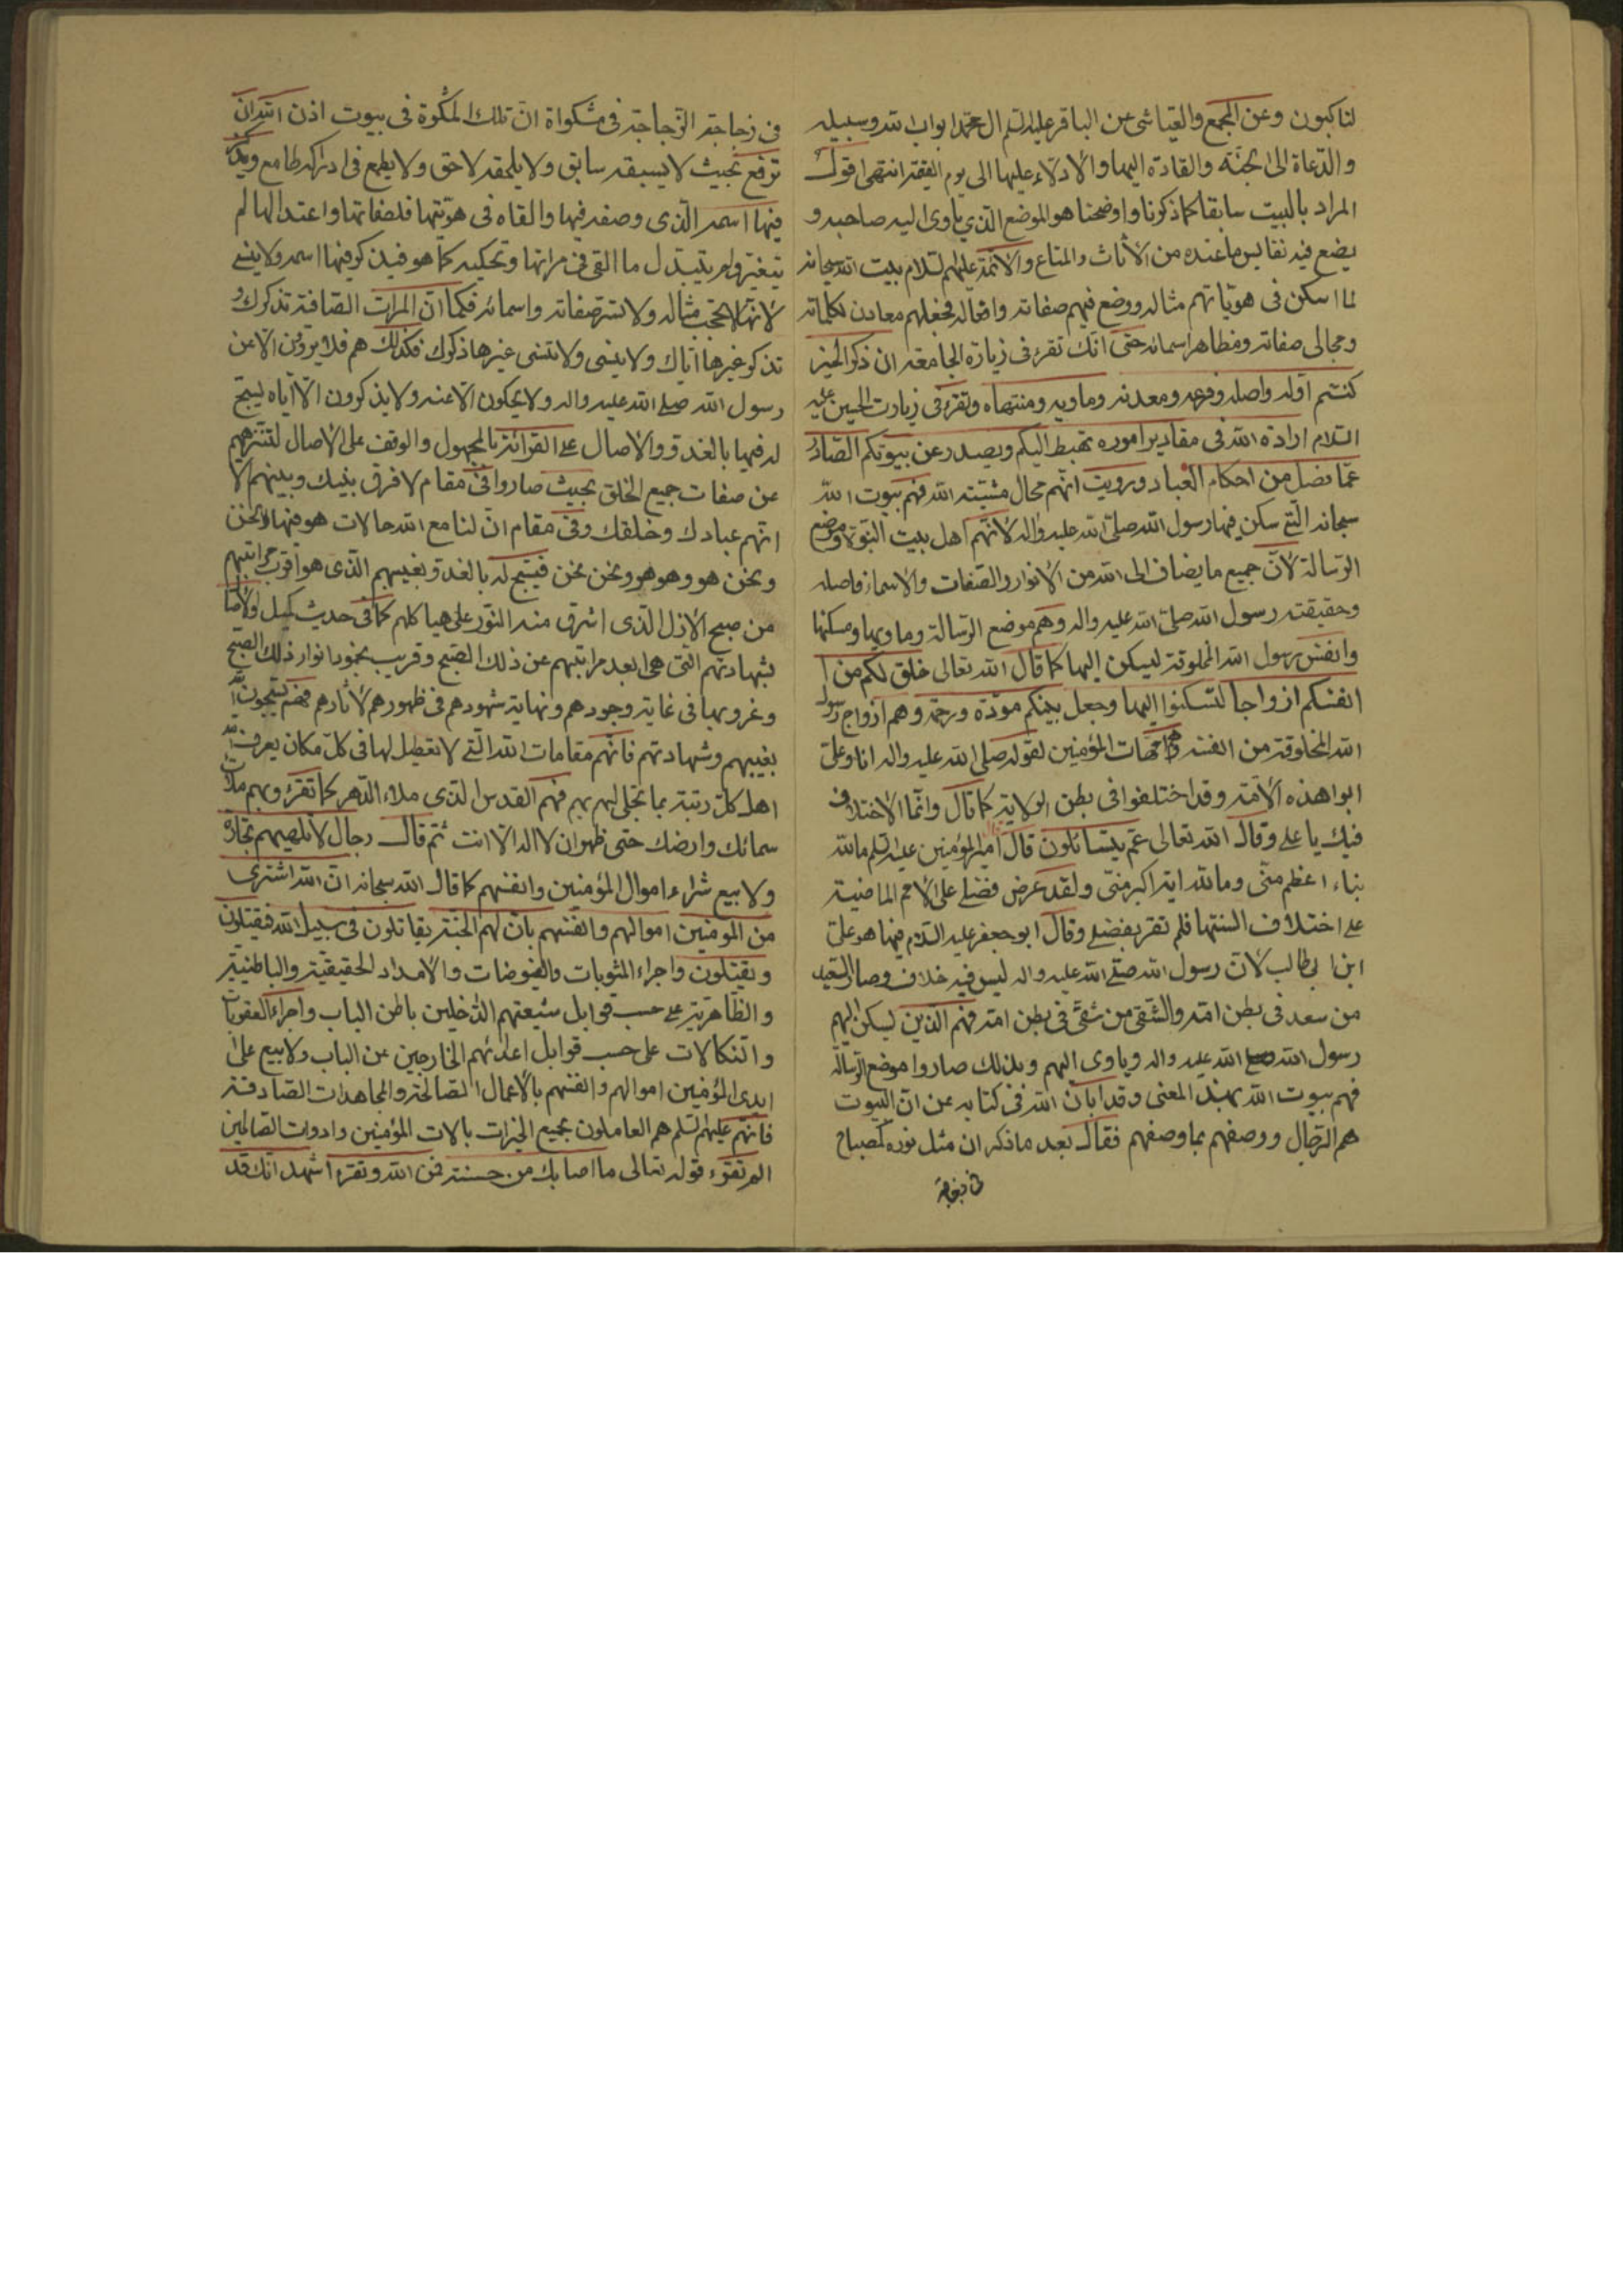 لناكبون وعن المجمع والعياشى عن الباقر عليه السلم ال محمد ابواب الله وسبيله
والدعاة الى الجنة والقادة اليها والادلاء عليها الى يوم القيمة انتهى اقول
المراد بالبيت سابقا كما ذكرنا واوضحنا هو الموضع الذي ياوى اليه صاحبه و
يضع فيه نفايس ما عنده من الاثاث والمتاع والائمة عليهم السلام بيت الله سبحانه
لما اسكن فى هوياتهم مثاله ووضع فيهم صفاته وافعاله فجعلهم معادن لكلماته
ومجالى صفاته ومظاهر اسمائه حتى انك تقرء فى زيارة الجامعة ان ذكر الخير
كنتم اوله واصله وفرعه ومعدنه وماويه ومنتهاه وتقرء فى زيارت الحسين عليه
السلام ارادة الله فى مقادير اموره تهبط اليكم ويصدر عن بيوتكم الصادر
عما فصل من احكام العباد ورويت انهم محال مشيته الله فهم بيوت الله
سبحانه التى سكن فيها رسول الله صلى الله عليه واله لانهم اهل بيت النبوة وموضع
الرسالة لان جميع ما يضاف الى الله من الانوار والصفات والاسماء فاصله
وحقيقته رسول الله صلى الله عليه واله وهم موضع الرسالة وماويها ومسكنها
وانفس رسول الله المخلوقة ليسكن اليها كما قال الله تعالى خلق لكم من ا
انفسكم ازواجا لتسكنوا اليها وجعل بينكم مودة ورحمة وهم ازواج رسول
الله المخلوقة من انفسه وهم امهات المؤمنين لقوله صلى الله عليه واله انا وعلى
ابوا هذه الامة وقد اختلفوا فى بطن الولاية كما قال وانما الاختلاف
فيك يا على وقال الله تعالى عم يتسائلون قال امير المؤمنين عليه السلم ما لله
نباء اعظم منى وما لله اية اكبر منى ولقد عرض فضلى على الامم الماضية
على اختلاف السنتها فلم تقر بفضلى وقال ابو جعفر عليه السلام فيها هو على
ابن ابى طالب لان رسول الله صلى الله عليه واله ليس فيه خلاف وصار السعيد
من سعد فى بطن امه والشقى من شقى فى بطن امه فهم الذين ليسكن اليهم
رسول الله صلى الله عليه واله وياوى اليهم وبذلك صاروا موضع الرسالة
فهم بيوت الله بهذا المعنى وقد ابان الله فى كتابه عن ان البيوت
هم الرجال ووصفهم بما وصفهم فقال بعد ما ذكر ان مثل نوره كمصباح
فى زجاجة
فى زجاجة الزجاجة فى مشكواة ان تلك المشكوة فى بيوت اذن الله ان
ترفع بحيث لا يسبقه سابق ولا يلحقه لاحق ولا يطمع فى ادراكه طامع ويذكر
فيها اسمه الذى وصفه فيها والقاه فى هويتها فلصفائها واعتدالها لم
يتغير ولم يتبدل ما القى فى مراتها وتحكيه كما هو فيذكر فيها اسمه ولا ينسى
لانها لا تحجب مثاله ولا تستر صفاته واسمائه فكما ان المرات الصافة تذكرك و
تذكر غيرها اياك ولا ينسى ولا تنسى غيرها ذكرك فكذلك هم فلا يروون الا عن
رسول الله صلى الله عليه واله ولا يحكون الا عنه ولا يذكرون الا اياه يسبح
له فيها بالغدو والاصال على القرائة بالمجهول والوقف على الاصال لتنزههم
عن صفات جميع الخلق بحيث صاروا فى مقام لا فرق بينك وبينهم الا
انهم عبادك وخلقك وفى مقام ان لنا مع الله حالات هو فيها نحن
ونحن هو وهو هو ونحن نحن فيسبح له بالغدو بغيبهم الذى هو اقرب مراتبهم
من صبح الازل الذى اشرق منه النور على هياكلهم كما فى حديث كميل والاصال
بشهادتهم التى هى ابعد مراتبهم عن ذلك الصبح وقريب بخمود انوار ذلك الصبح
وغروبها فى غاية وجودهم ونهاية شهودهم فى ظهورهم لاثارهم فهم يسبحون الله
بغيبهم وشهادتهم فانهم مقامات الله التى لا تعطيل لها فى كل مكان يعرف الله
اهل كل رتبة بما تجلى لهم بهم فهم القدس الذى ملاء الدهر كما تقرء وبهم ملات
سمائك وارضك حتى ظهر ان لا اله الا انت ثم قال رجال لا تلهيهم تجارة
ولا بيع شراء اموال المؤمنين وانفسهم كما قال الله سبحانه ان الله اشترى
من المومنين اموالهم وانفسهم بان لهم الجنة يقاتلون فى سبيل الله فيقتلون
ويقتلون واجراء المثوبات والفيوضات والامداد الحقيقية والباطنية
والظاهرية على حسب قوابل شيعتهم الداخلين باطن الباب واجراء العقوبات
والنكالات على حسب قوابل اعدائهم الخارجين عن الباب ولا بيع على
ايدى المؤمنين اموالهم وانفسهم بالاعمال الصالحة والمجاهدات الصادقة
فانهم عليهم السلم هم العاملون بجميع الخيرات بالات المؤمنين وادوات الصالحين
الم تقرء قوله تعالى ما اصابك من حسنة فمن الله وتقرء اشهد انك قد